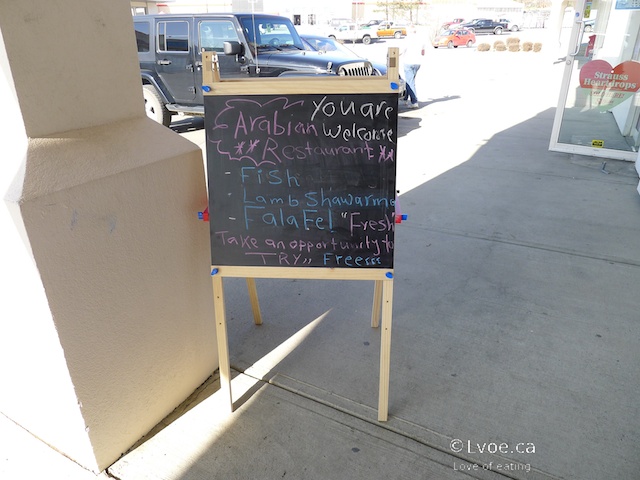 You are
Arabian Welcome
** Restaurant **
- Fish
Lamb Shawarma
- Falafel "Fresh"
Take an opportunity to
TRY,, Free
Strauss
Heartdrops
©Lvoe.ca
Love of eating